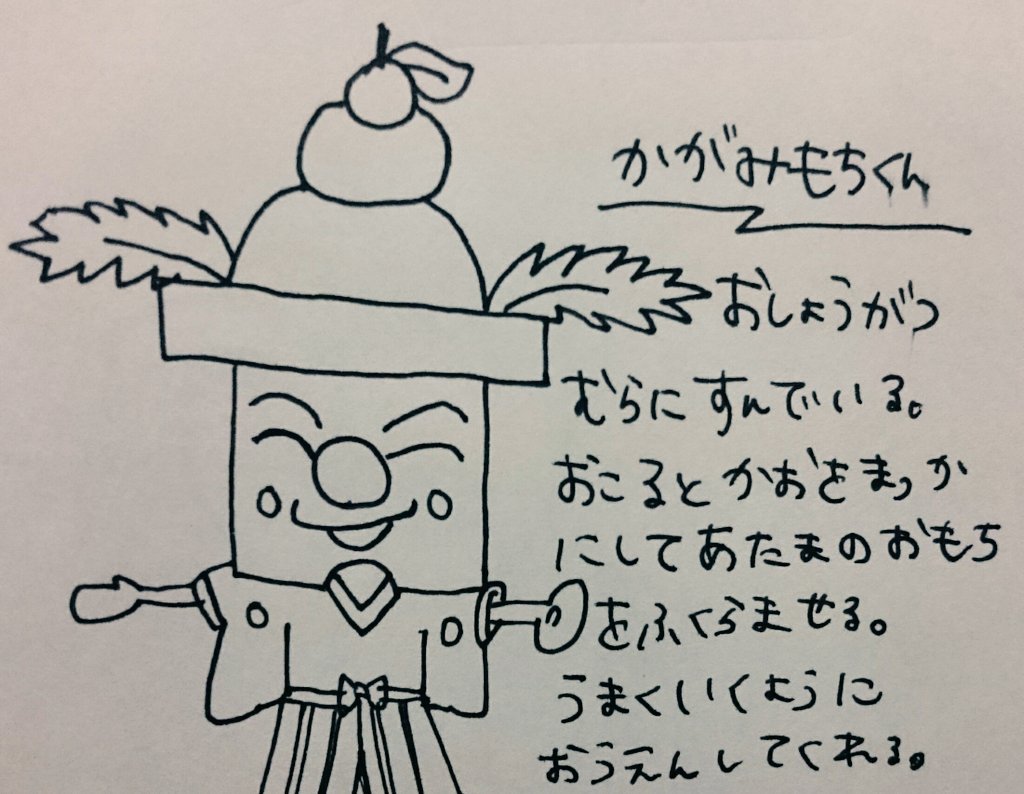 かがみもちくん
おしょうがつ
むらにすんでいる。
おこるとかおをまっか
にしてあたまのおもち
をふくらませる。
うまくいくように
おうえんしてくれる。